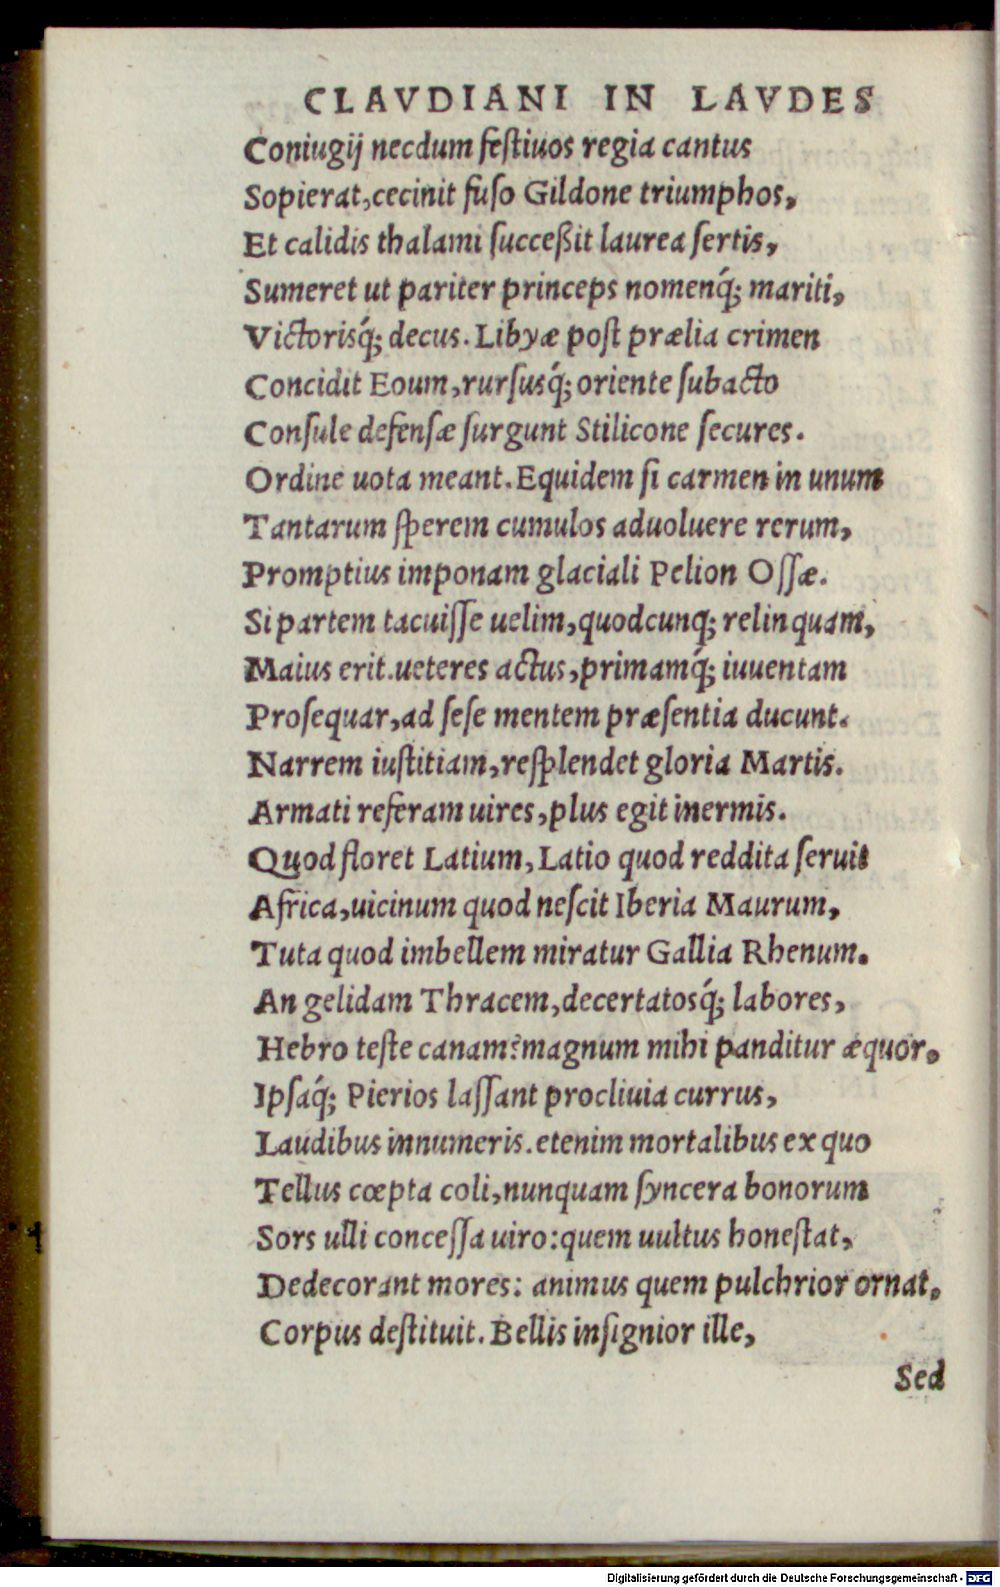 CLAVDIANI IN LAVDES
Coniugij necdum festiuos regia cantus
Sopierat, cecinit fuso Gildone triumphos,
Et calidis thalami succeßit laurea sertis,
Sumeret ut pariter princeps nomenq́; mariti,
Victorisq́; decus. Libyæ post prælia crimen
Concidit Eoum, rursusq́; oriente subacto
Consule defensæ surgunt Stilicone secures.
Ordine uota meant. Equidem si carmen in unum
Tantarum sperem cumulos aduoluere rerum,
Promptius imponam glaciali Pelion Ossæ.
Si partem tacuisse uelim, quodcunq; relinquam,
Maius erit. ueteres actus, primamq́; iuuentam
Prosequar, ad sese mentem præsentia ducunt.
Narrem iustitiam, resplendet gloria Martis.
Armati referam uires, plus egit inermis.
Quod floret Latium, Latio quod reddita seruit
Africa, uicinum quod nescit Iberia Maurum,
Tuta quod imbellem miratur Gallia Rhenum.
An gelidam Thracem, decertatosq́; labores,
Hebro teste canam? magnum mihi panditur æquor,
Ipsaq́; Pierios lassant procliuia currus,
Laudibus innumeris. etenim mortalibus ex quo
Tellus cœpta coli, nunquam syncera bonorum
Sors ulli concessa uiro: quem uultus honestat,
Dedecorant mores: animus quem pulchrior ornat,
Corpus destituit. Bellis insignior ille,
Sed
Digitalisierung gefördert durch die Deutsche Forschungsgemeinschaft - DFG